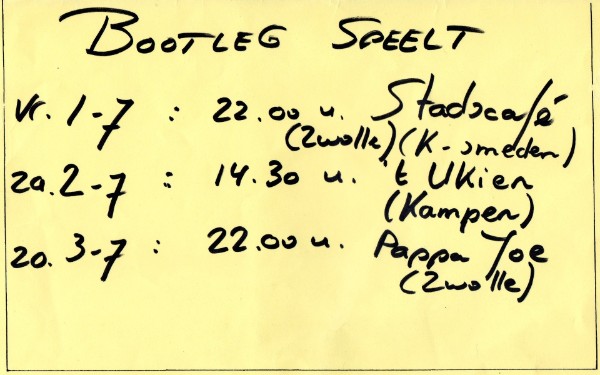 BOOTLEG SPEELT
Vr. 1-7 : 22.00 u. Stadscafé
(Zwolle) (K-smeden)
za. 2-7 : 14.30 u. 't Ukien
(Kampen)
zo. 3-7 : 22.00 u. Pappa Joe
(Zwolle)